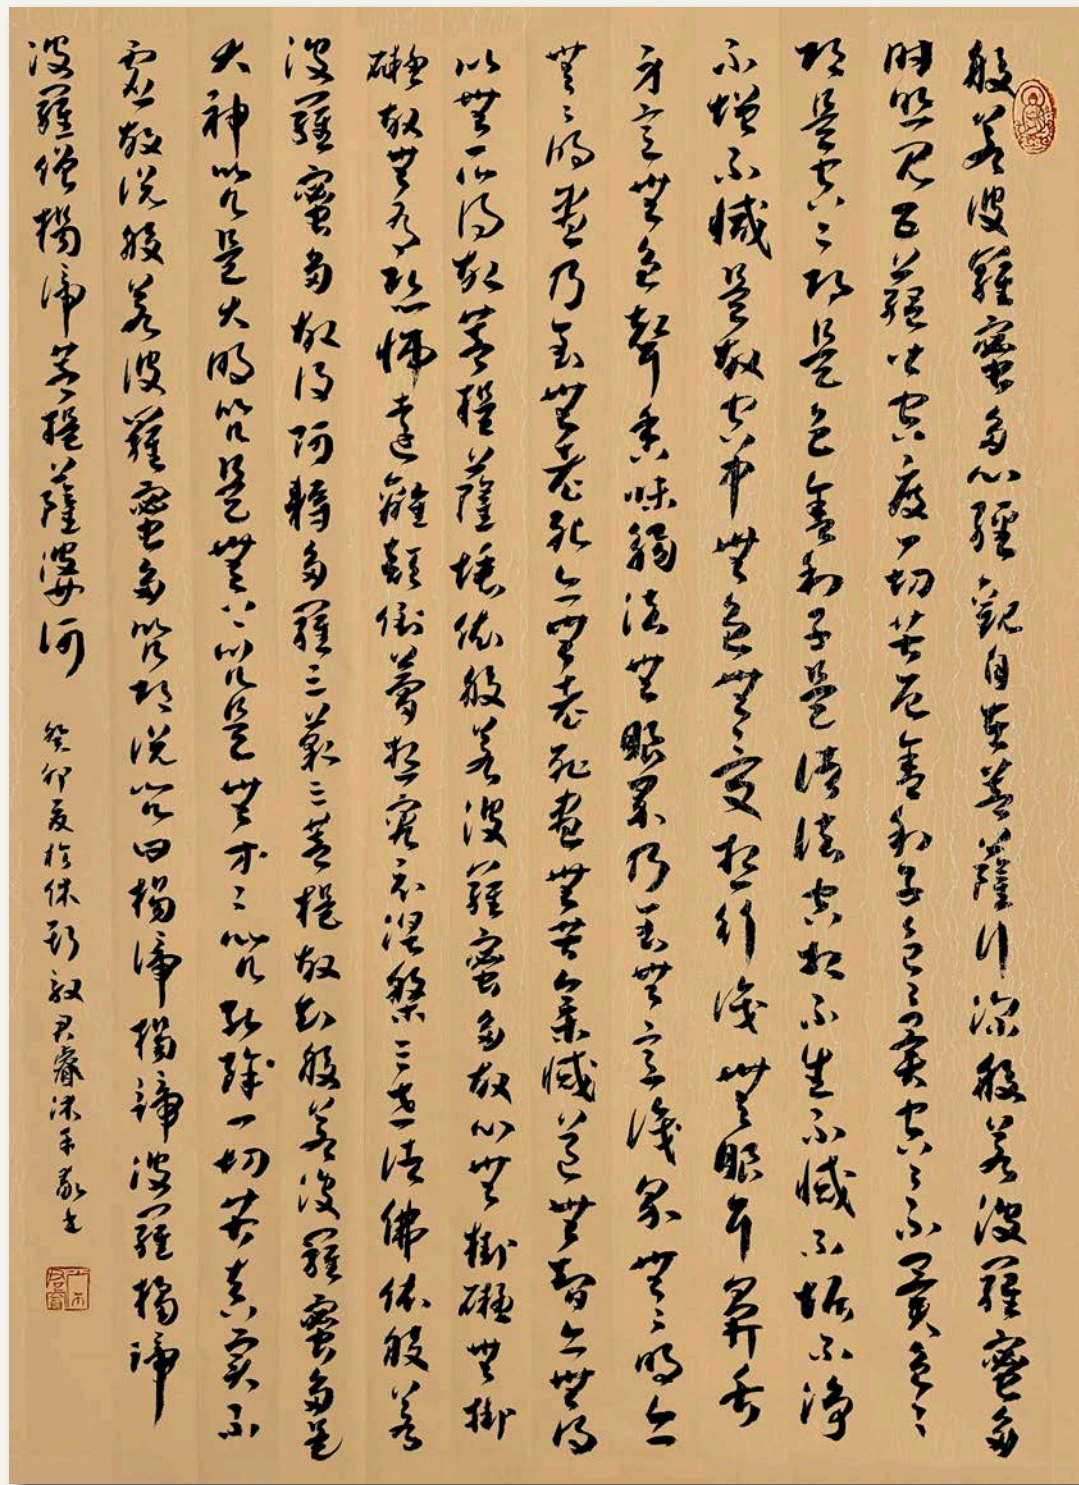 般若波羅蜜多心經觀自在菩薩行深般若波羅蜜多
時照見五蘊皆空度一切苦厄舍利子色不異空〻不異色〻
即是空〻即是色舍利子是諸法空相不生不滅不垢不淨
不增不減是故空中無色無〻受想行識無眼耳鼻舌
身意無色聲香味觸法無眼界乃至無意識界無〻明亦
無〻明盡乃至無老死亦無老死盡無苦集滅道無智亦無得
以無所得故菩提薩埵依般若波羅蜜多故心無掛礙無掛
礙故無有恐怖遠離顛倒夢想究竟涅槃三世諸佛依般若
波羅蜜多故得阿耨多羅三藐三菩提故知般若波羅蜜多是
大神咒是大明咒是無上咒是無等〻咒能除一切苦真實不
虛故說般若波羅蜜多咒即說咒曰揭諦揭諦波羅揭諦
波羅僧揭諦菩提薩婆訶
癸卯夏於休斯敦君睿沐手敬書